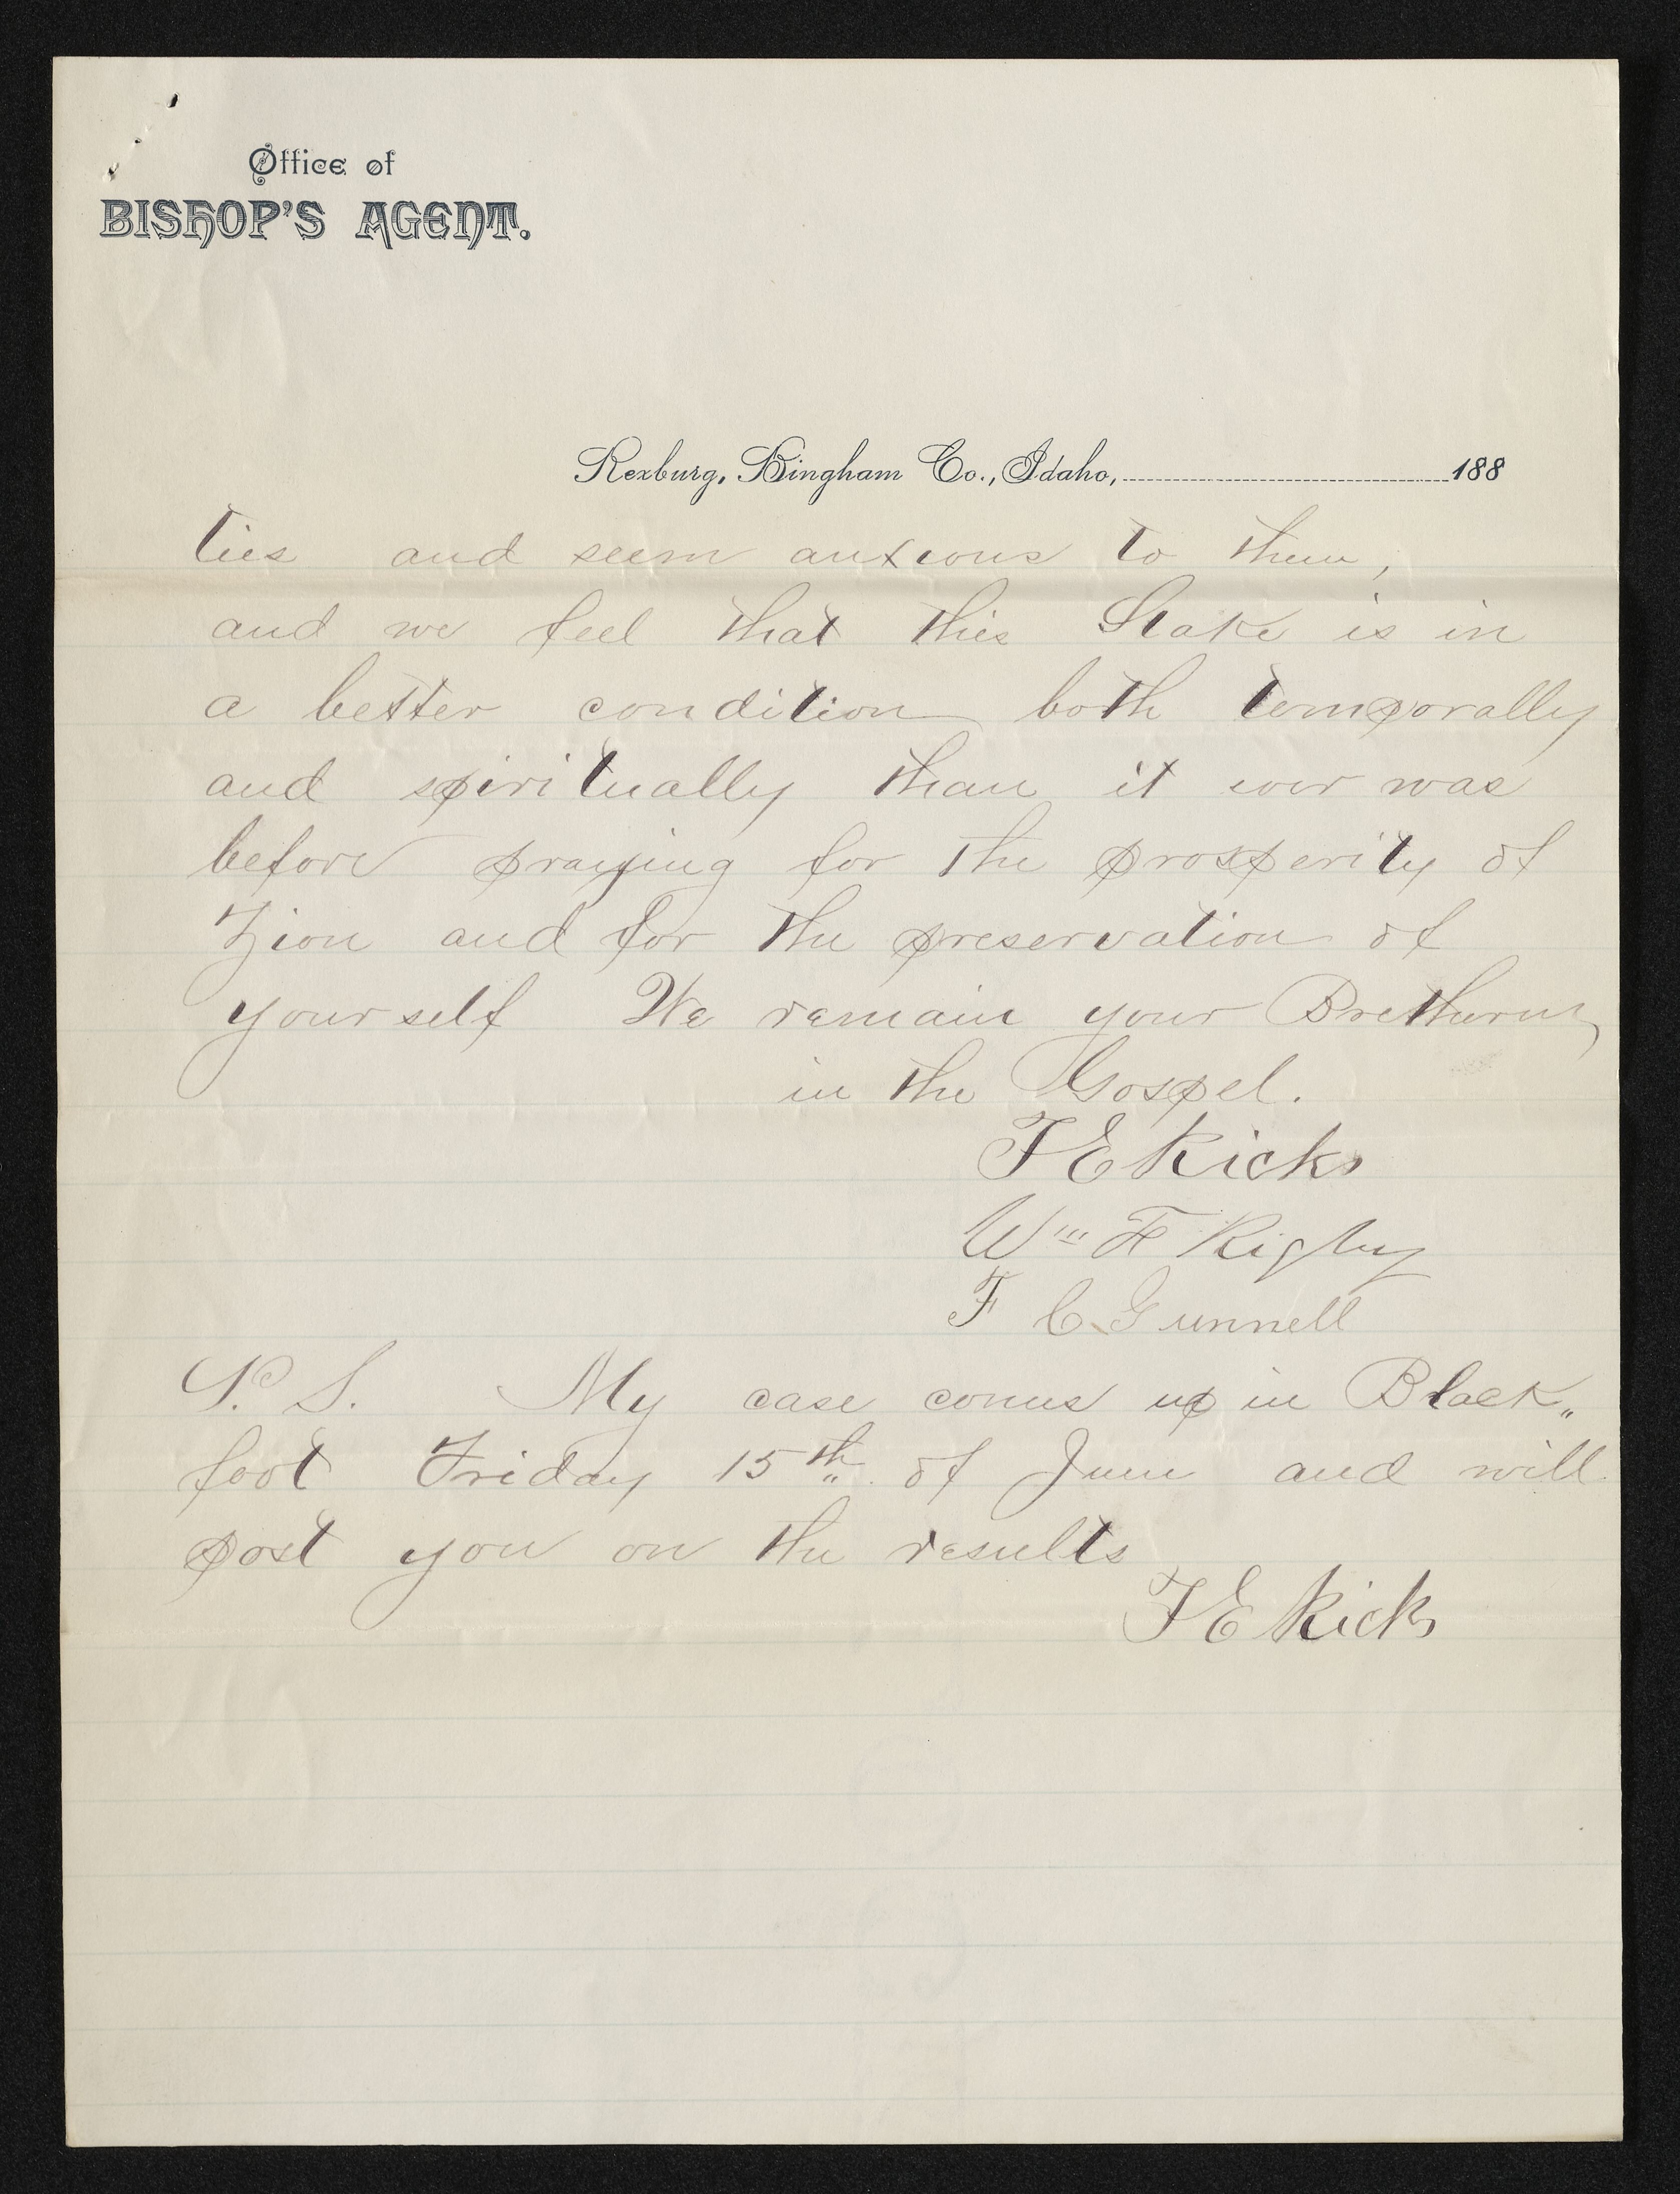 Office of
BISHOP'S AGENT.
Rexburg, Bingham Co., Idaho, 188
ties and seem anxious to them,
and we feel that this Stake is in
a better condition both temporally
and spiritually than it ever was
before praying for the prosperity of
Zion and for the preservation of
yourself We remain your Bretheren
in the Gospel.
T E Ricks
Wm F Rigby
F C Gunnell
P. S. My case comes up in Black„
foot Friday 15th of June and will
post you on the results
T E Ricks